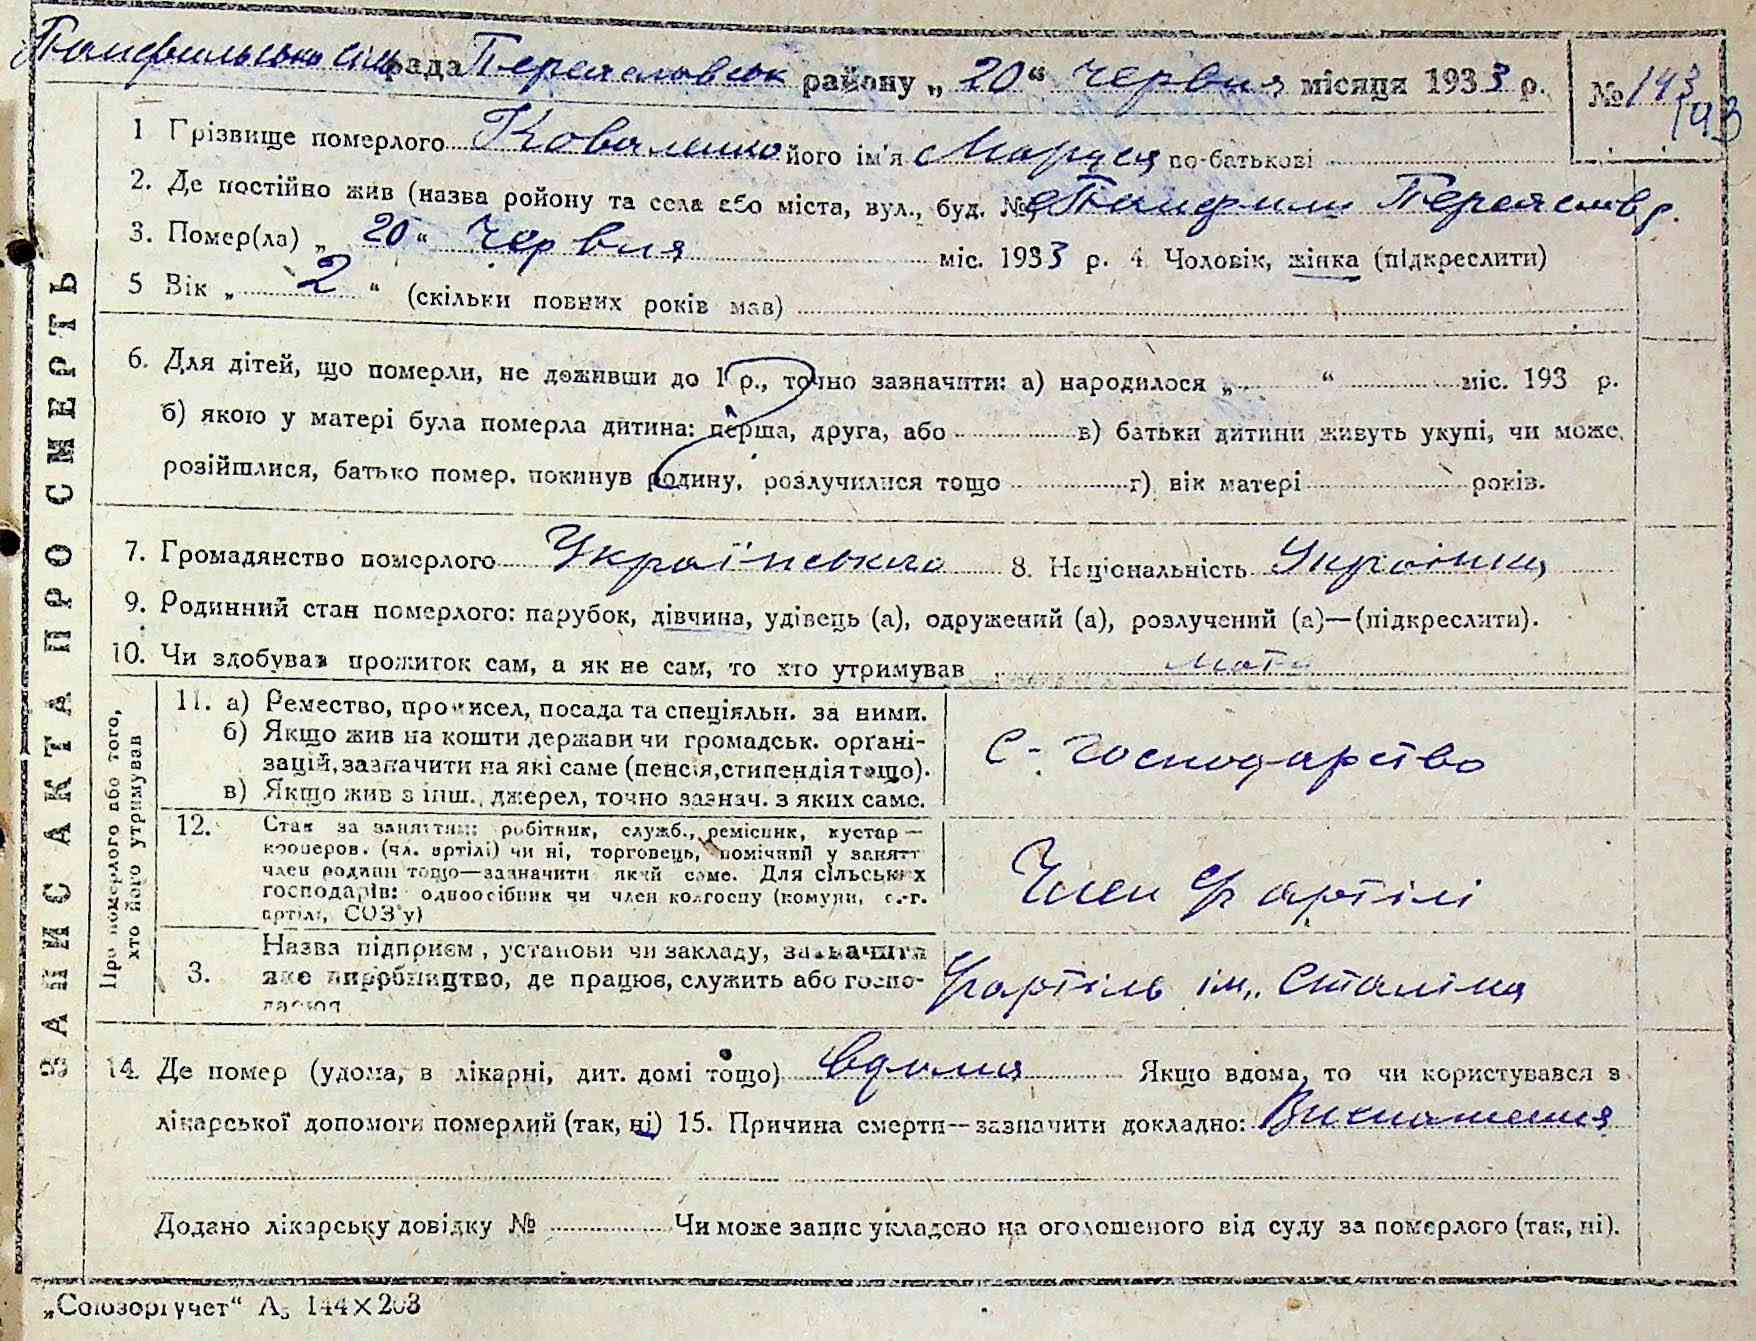 Панфильська сільрада Переяславськ району „20“ червня місяця 1933 р. №143
143
1 Прізвище померлого Коваленко його ім'я Маруся по-батькові
2. Де постійно жив (назва ройону та села або міста, вул., буд. № с Панфили Переяслав р.
3. Помер(ла) „20“ червня міс. 1933 р. 4 Чоловік, жінка (підкреслити)
5 Вік „2“ (скільки повних років мав)
6. Для дітей, що померли, не доживши до 1 р., точно зазначити: а) народилося „ “ міс. 193 р.
б) якою у матері була померла дитина: перша, друга, або в) батьки дитини живуть укупі, чи може,
розійшлися, батько помер, покинув родину, розлучилися тощо г) вік матері років.
7. Громадянство померлого Українського 8. Національність Українц
9. Родинний стан померлого: парубок, дівчина, удівець (а), одружений (а), розлучений (а)—(підкреслити).
10. Чи здобував прожиток сам, а як не сам, то хто утримував мати
ЗАПИС АКТА ПРО СМЕРТЬ
Про померлого або того,
хто його утримував
11. а) Ремество, промисел, посада та спеціяльн. за ними.
б) Якщо жив на кошти держави чи громадськ. органі-
зацій, зазначити на які саме (пенсія, стипендія тощо).
в) Якщо жив з інш. джерел, точно зазнач. з яких саме.
с-господарство
12. Стан за заняттям: робітник, служб., ремісник, кустар—
кооперов. (чл. артілі) чи ні, торговець, помічний у занятт
член родини тощо—зазначити який саме. Для сільських
господарів: одноосібник чи член колгоспу (комуни, с.-г.
артілі, СОЗ'у)
Член с/г артілі
Назва підприєм, установи чи закладу, зазначити
3. яке виробництво, де працює, служить або госпо-
дарює
с/г артіль ім. Сталіна
14. Де помер (удома, в лікарні, дит. домі тощо) вдома Якщо вдома, то чи користувався з
лікарської допомоги померлий (так, ні) 15. Причина смерти—зазначити докладно: Виснаження
Додано лікарську довідку № Чи може запис укладено на оголошеного від суду за померлого (так, ні).
„Союзоргучет“ А5 144×203